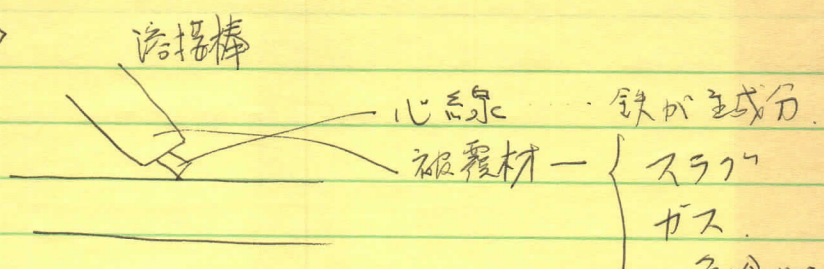 溶接棒
心線 ‥‥ 鉄が主成分.
被覆材 ー { スラグ
ガス.